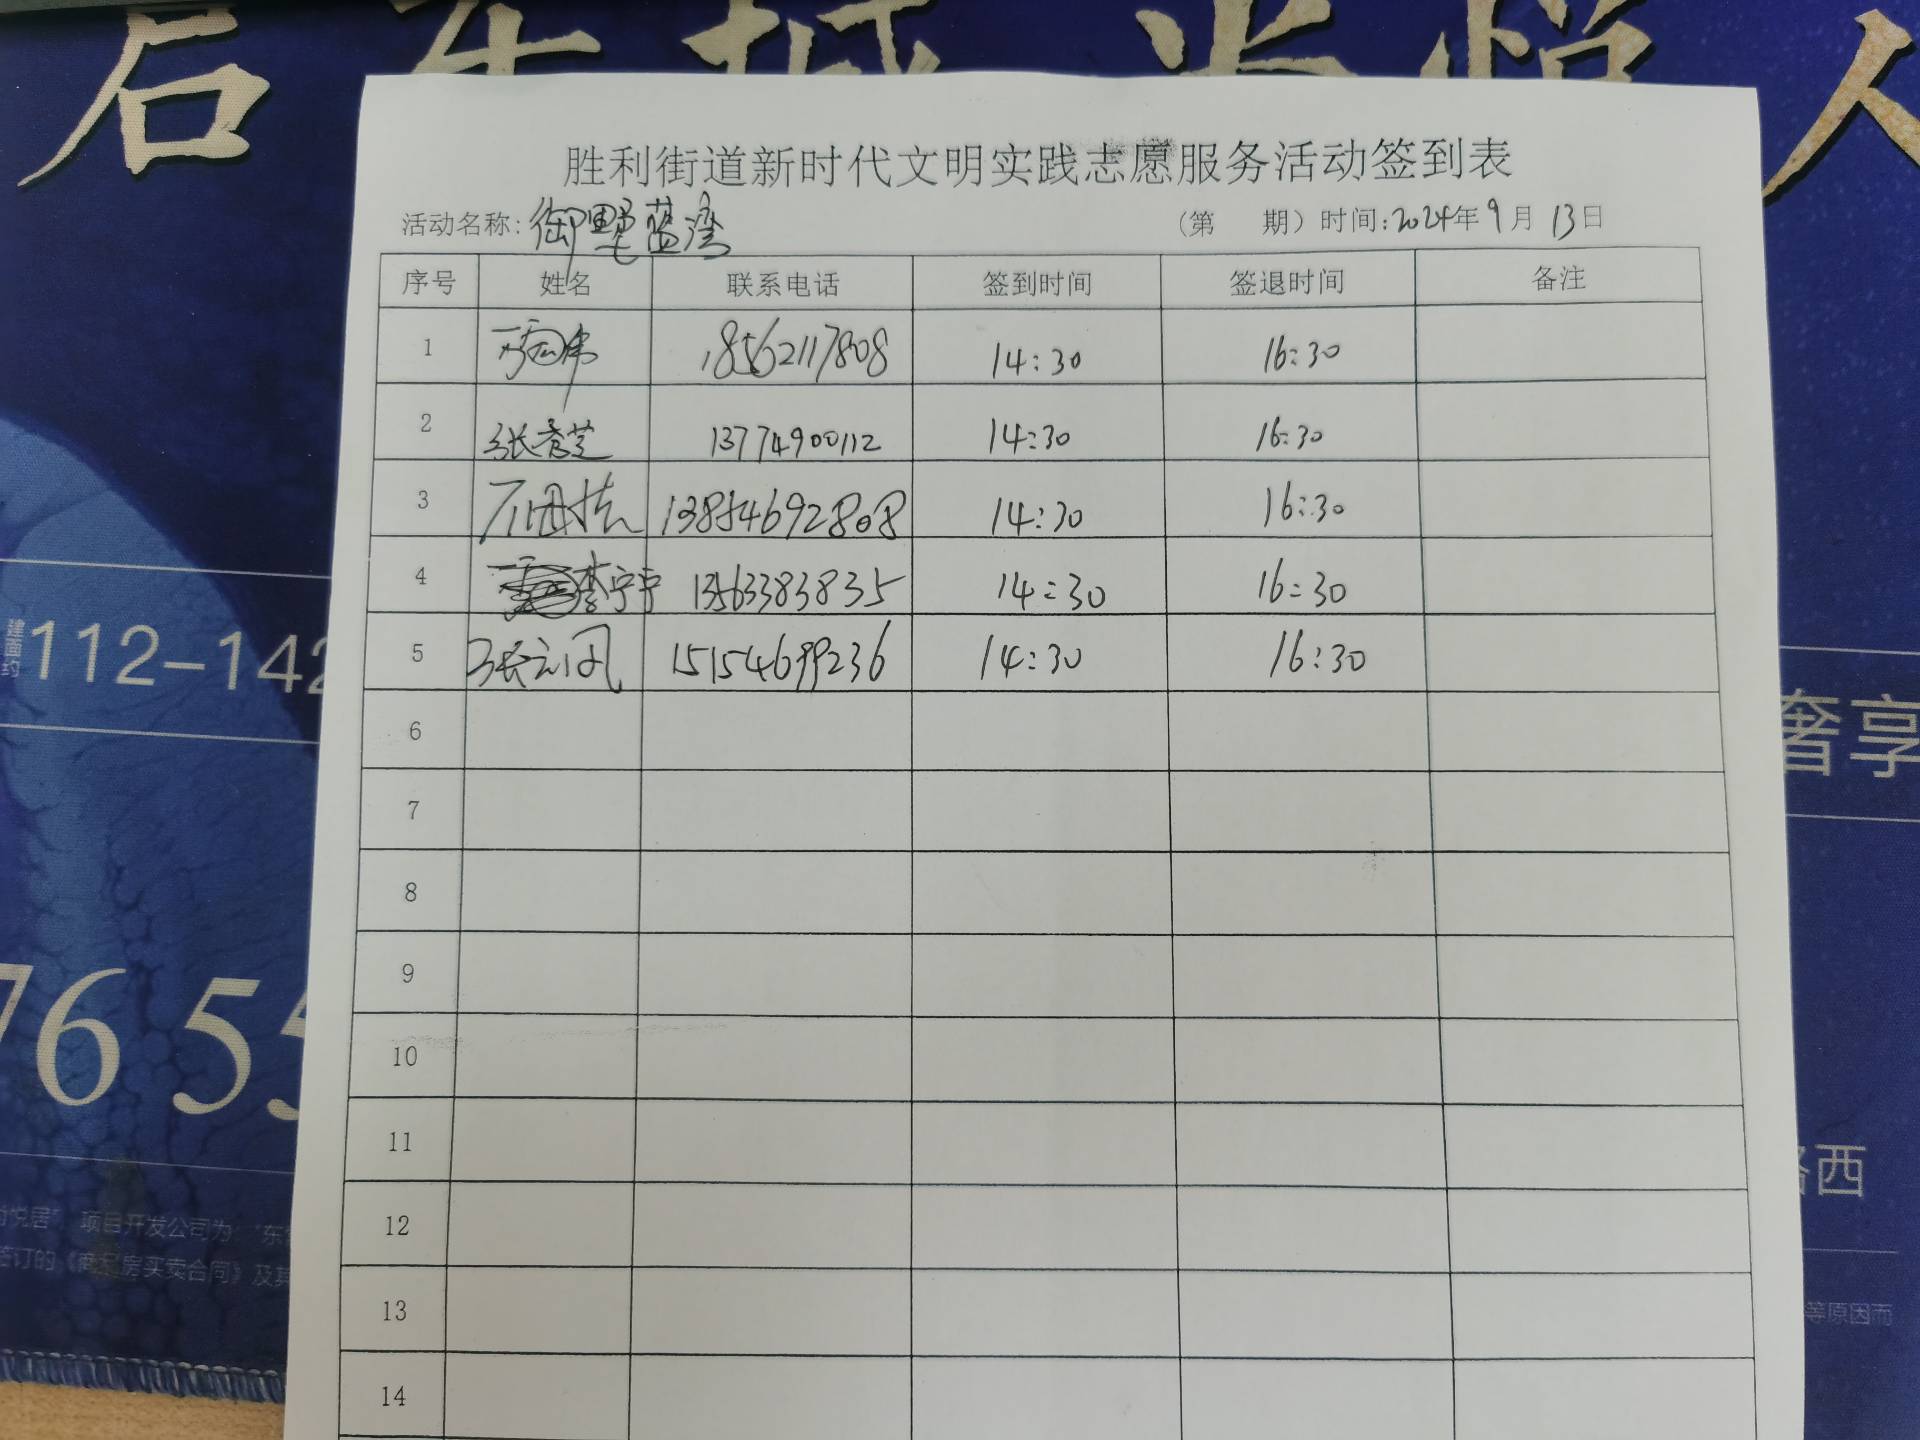 胜利街道新时代文明实践志愿服务活动签到表
活动名称:御墅蓝湾 (第 期) 时间:2024年9月13日
序号 姓名 联系电话 签到时间 签退时间 备注
1 18562117808 14:30 16:30
2 张秀芝 13774900112 14:30 16:30
3 13854692808 14:30 16:30
4 李宁宁 13563383835 14:30 16:30
5 张云凤 15154699236 14:30 16:30
6
7
8
9
10
11
12
13
14
建面约112-142
76 55
奢享
路西
悦居" 项目开发公司为 "东
签订的《商品房买卖合同》及其
等原因而